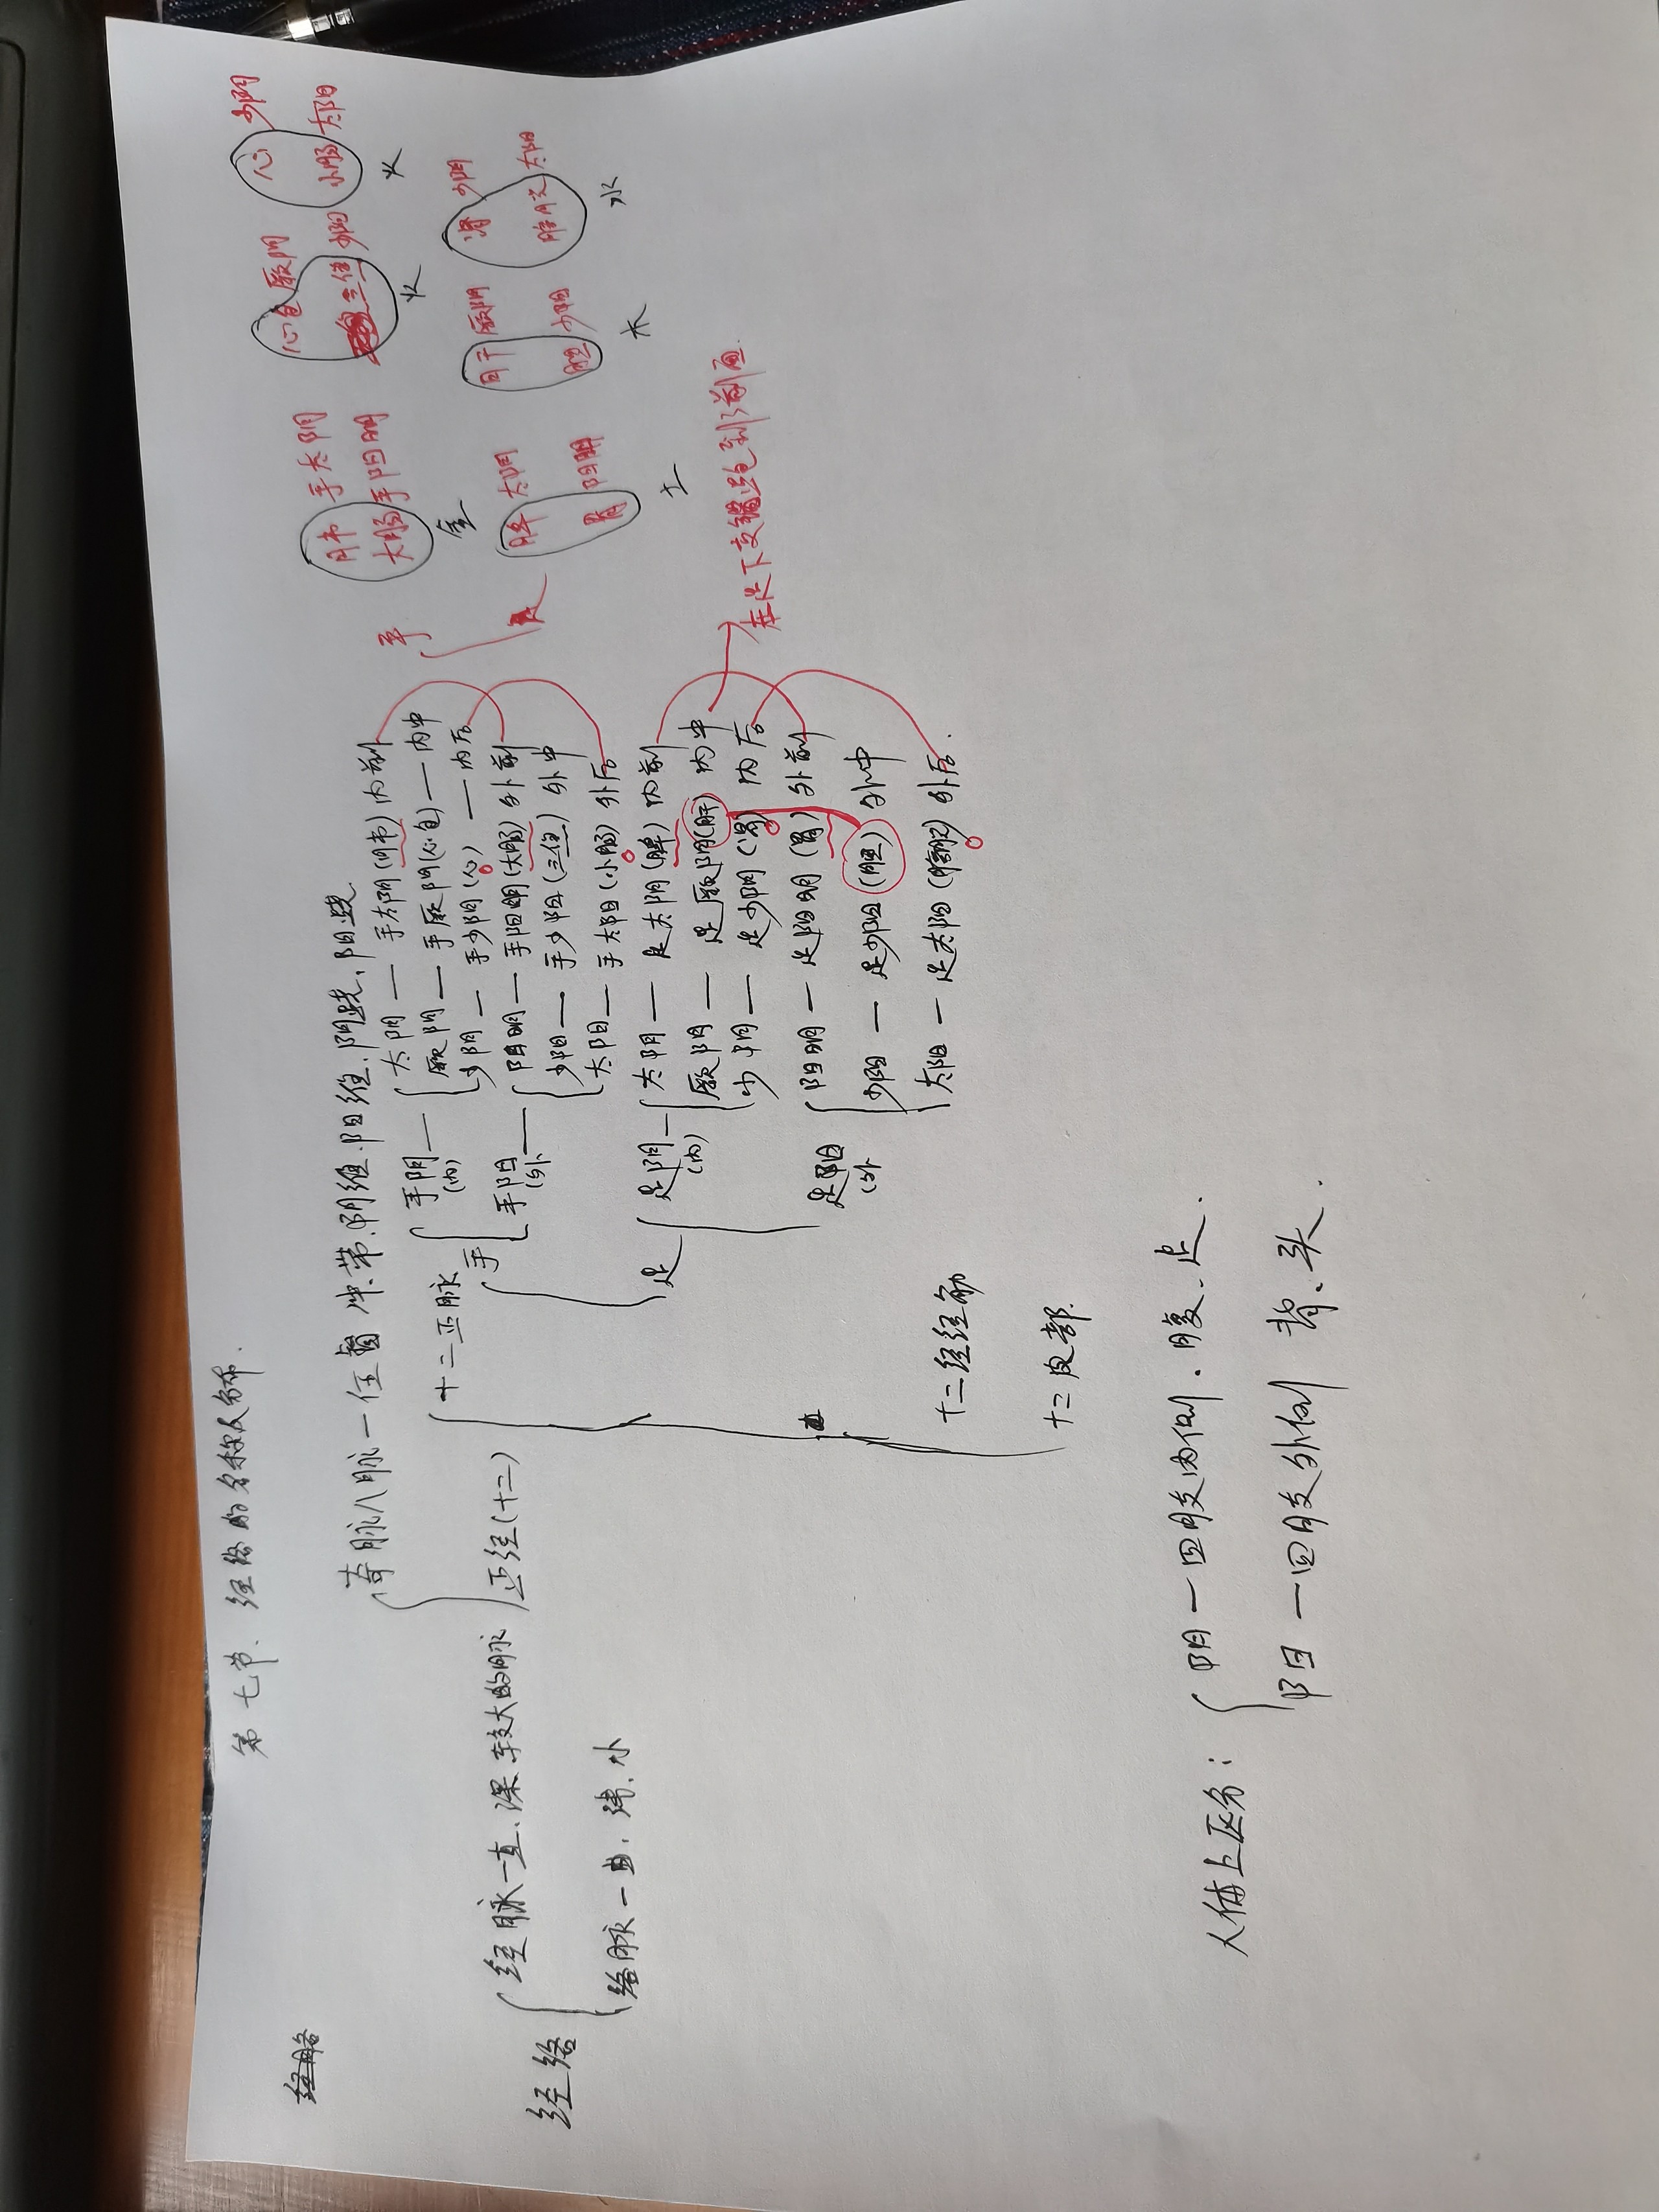 第七节、经络的名称及分布.
经络
经络
经脉一直、深、较大的脉
络脉一 、 、小
奇脉八脉一任督 冲.带.阴维.阳维.阴跷、阳跷.
正经(十二)
十二正脉
手
手阴
(内)
太阴 — 手太阴(肺)内前
厥阴 — 手厥阴(心包) — 内中
少阴 — 手少阴(心) — 内后
手阳
(外)
阳明 — 手阳明(大肠)外前
少阳 — 手少阳(三焦)外中
太阳 — 手太阳(小肠)外后
足
足阴
(内)
太阴 — 足太阴(脾)内前
厥阴 — 足厥阴(肝)内中
少阴 — 足少阴(肾)内后
足阳
(外)
阳明 — 足阳明(胃)外前
少阳 — 足少阳(胆)外中
太阳 — 足太阳(膀胱)外后.
在足下交 到了前面.
十二经经筋
十二皮部.
手
肺 手太阴
大肠 手阳明
金
心包 厥阴
三焦 少阳
火
心 少阴
小肠 太阳
火
足
脾 太阴
胃 阳明
土
肝 厥阴
胆 少阳
木
肾 少阴
膀胱 太阳
水
人体上区分:
阴 一四肢内侧.腹.足.
阳 一四肢外侧 背、头.